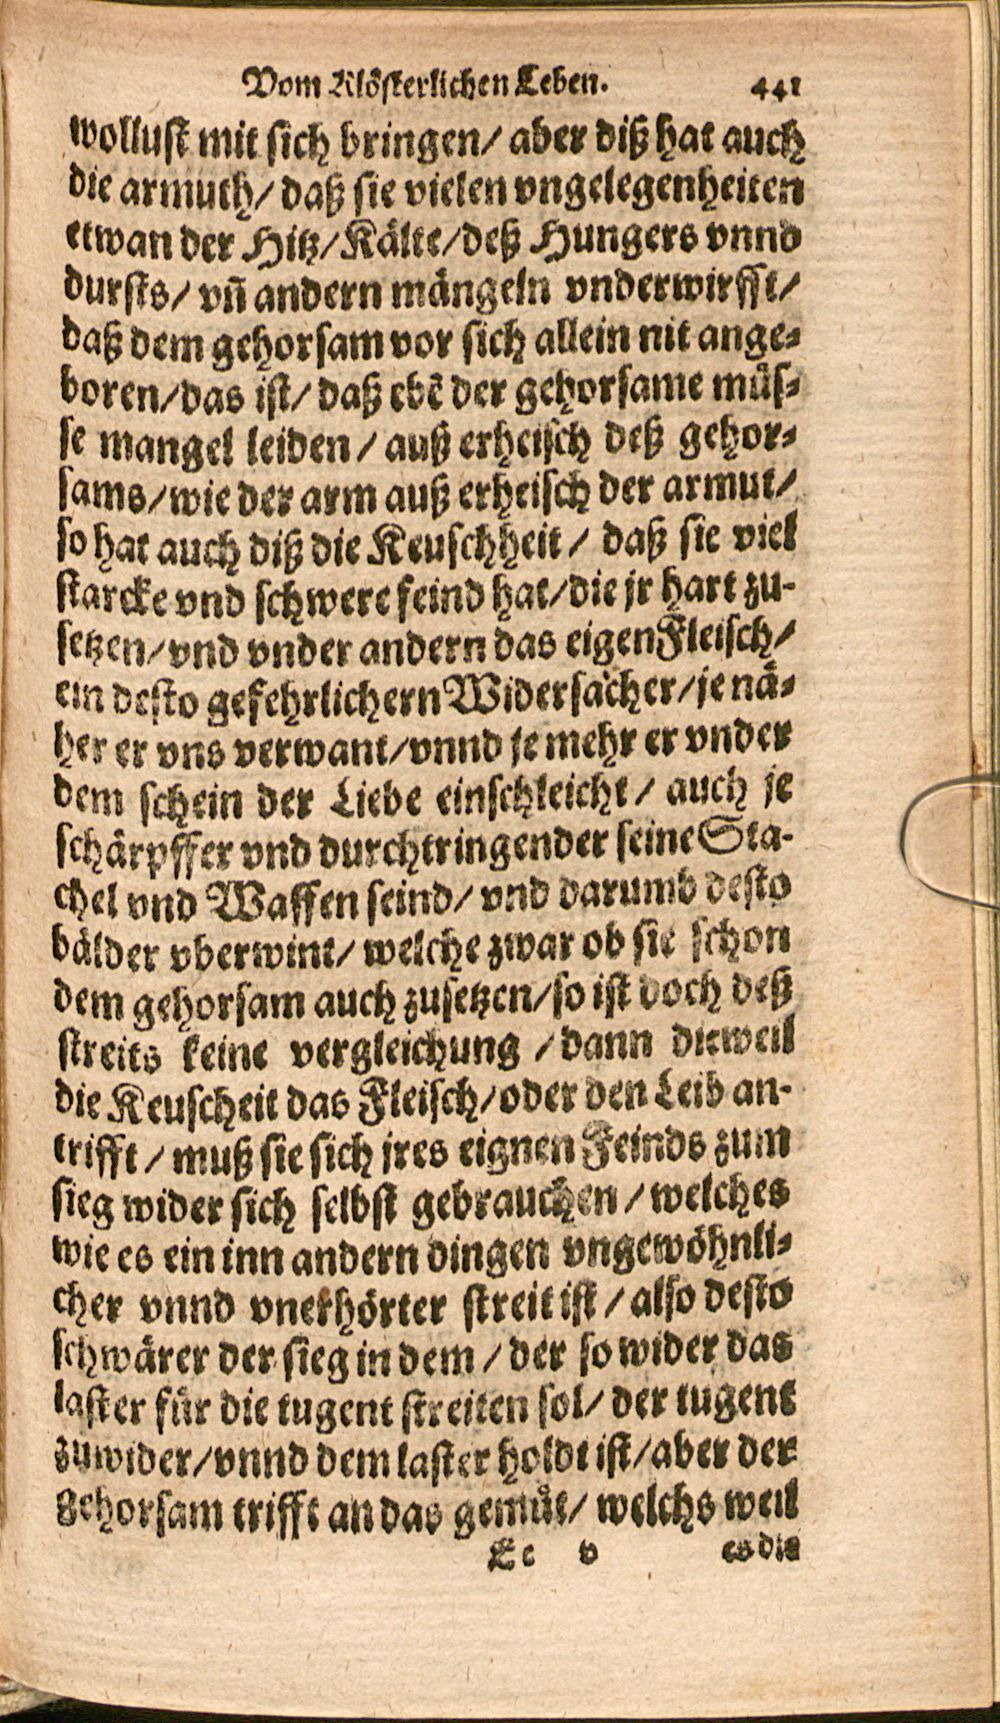 Vom Klösterlichen Leben. 441
wollust mit sich bringen/ aber diß hat auch
die armuth/ daß sie vielen vngelegenheiten
etwan der Hitz/ Kälte/ deß Hungers vnnd
dursts/ vñ andern mängeln vnderwirfft/
daß dem gehorsam vor sich allein nit ange-
boren/ das ist/ daß ebẽ der gehorsame müs-
se mangel leiden/ auß erheisch deß gehor-
sams/ wie der arm auß erheisch der armut/
so hat auch diß die Keuschheit/ daß sie viel
starcke vnd schwere feind hat/ die jr hart zu-
setzen/ vnd vnder andern das eigen Fleisch/
ein desto gefehrlichern Widersacher/ je nä-
her er vns verwant/ vnnd je mehr er vnder
dem schein der Liebe einschleicht/ auch je
schärpffer vnd durchtringender seine Sta-
chel vnd Waffen seind/ vnd darumb desto
bälder vberwint/ welche zwar ob sie schon
dem gehorsam auch zusetzen/ so ist doch deß
streits keine vergleichung/ dann dieweil
die Keuscheit das Fleisch/ oder den Leib an-
trifft/ muß sie sich jres eignen Feinds zum
sieg wider sich selbst gebrauchen/ welches
wie es ein inn andern dingen vngewöhnli-
cher vnnd vnerhörter streit ist/ also desto
schwärer der sieg in dem/ der so wider das
laster für die tugent streiten sol/ der tugent
zuwider/ vnnd dem laster holdt ist/ aber der
gehorsam trifft an das gemüt/ welchs weil
Ee v es die